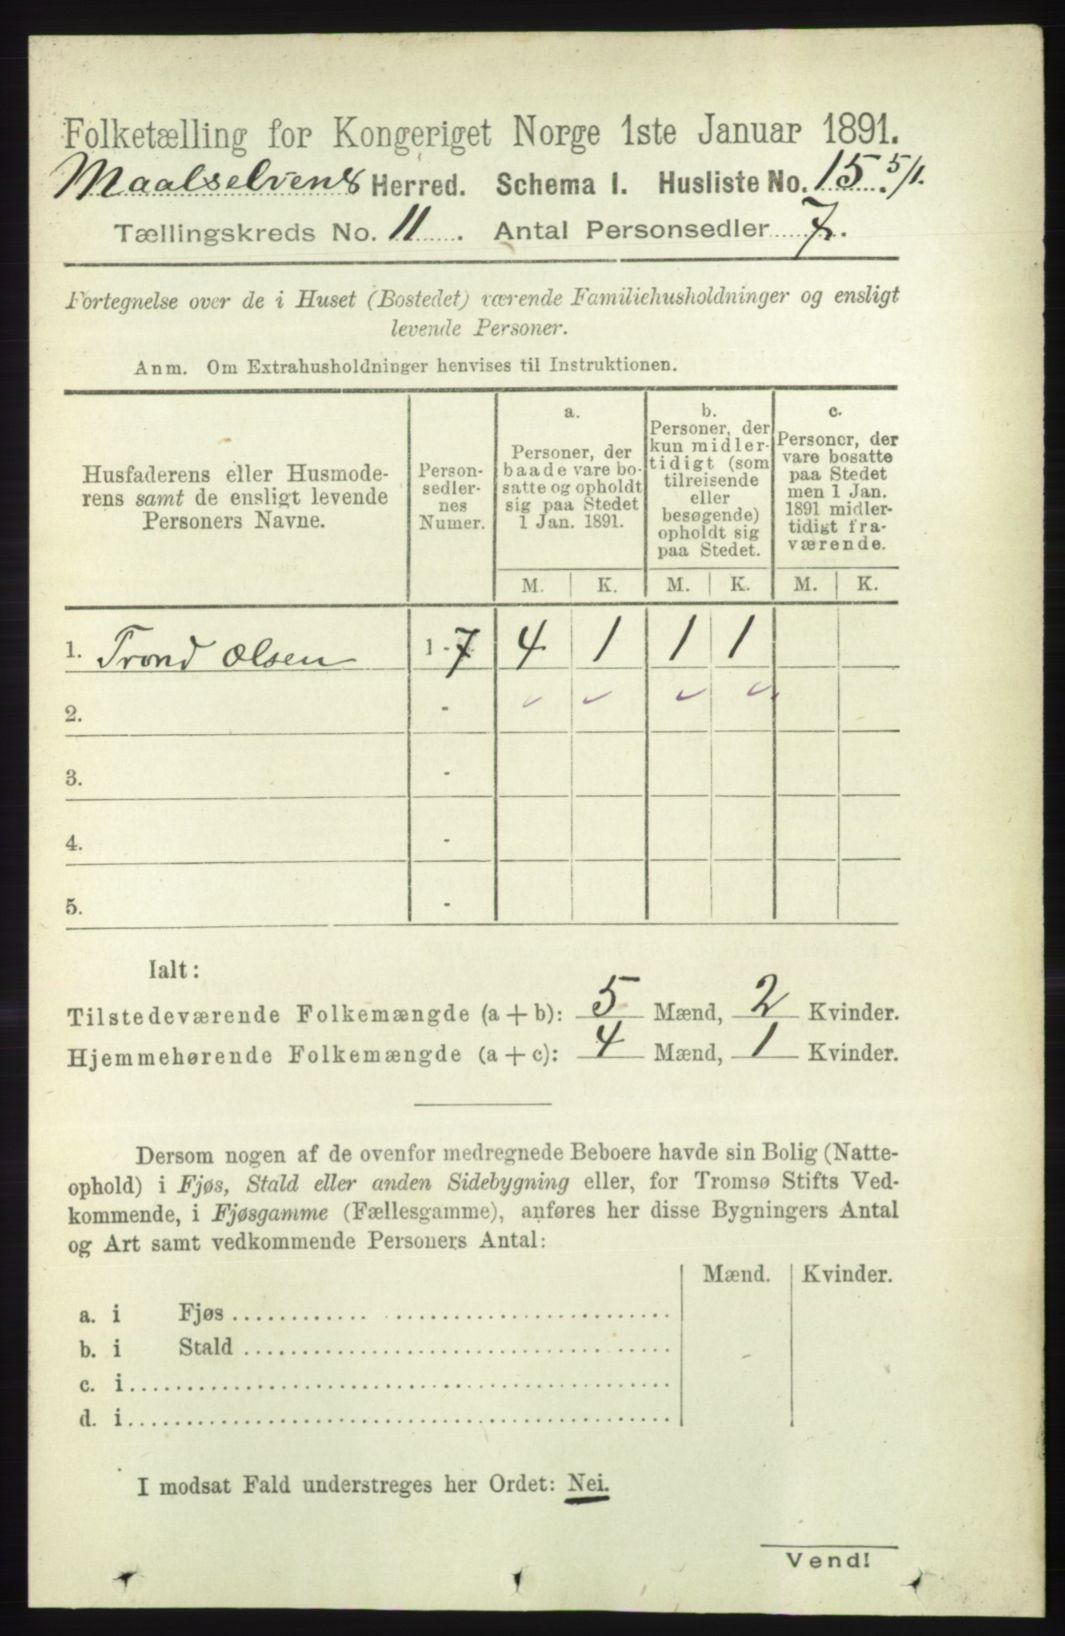 Folketælling for Kongeriget Norge 1ste Januar 1891.
Maalselvens Herred. Schema I. Husliste No. 15. 5/1.
Tællingskreds No. 11. Antal Personsedler 7.
Fortegnelse over de i Huset (Bostedet) værende Familiehusholdninger og ensligt
levende Personer.
Anm. Om Extrahusholdninger henvises til Instruktionen.
Husfaderens eller Husmode-
rens samt de ensligt levende
Personers Navne.
Person-
sedler-
nes
Numer.
a.
Personer, der
baade vare bo-
satte og opholdt
sig paa Stedet
1 Jan. 1891.
b.
Personer, der
kun midler-
tidigt (som
tilreisende
eller
besøgende)
opholdt sig
paa Stedet.
c.
Personer, der
vare bosatte
paa Stedet
men 1 Jan.
1891 midler-
tidigt fra-
værende.
M. K. M. K. M. K.
1. Trond Olsen 1 - 7 4 1 1 1
2. -
3. -
4. -
5. -
Ialt:
Tilstedeværende Folkemængde (a + b): 5 Mænd, 2 Kvinder.
Hjemmehørende Folkemængde (a + c): 4 Mænd, 1 Kvinder.
Dersom nogen af de ovenfor medregnede Beboere havde sin Bolig (Natte-
ophold) i Fjøs, Stald eller anden Sidebygning eller, for Tromsø Stifts Ved-
kommende, i Fjøsgamme (Fællesgamme), anføres her disse Bygningers Antal
og Art samt vedkommende Personers Antal:
Mænd. Kvinder.
a. i Fjøs
b. i Stald
c. i
d. i
I modsat Fald understreges her Ordet: Nei.
Vend!